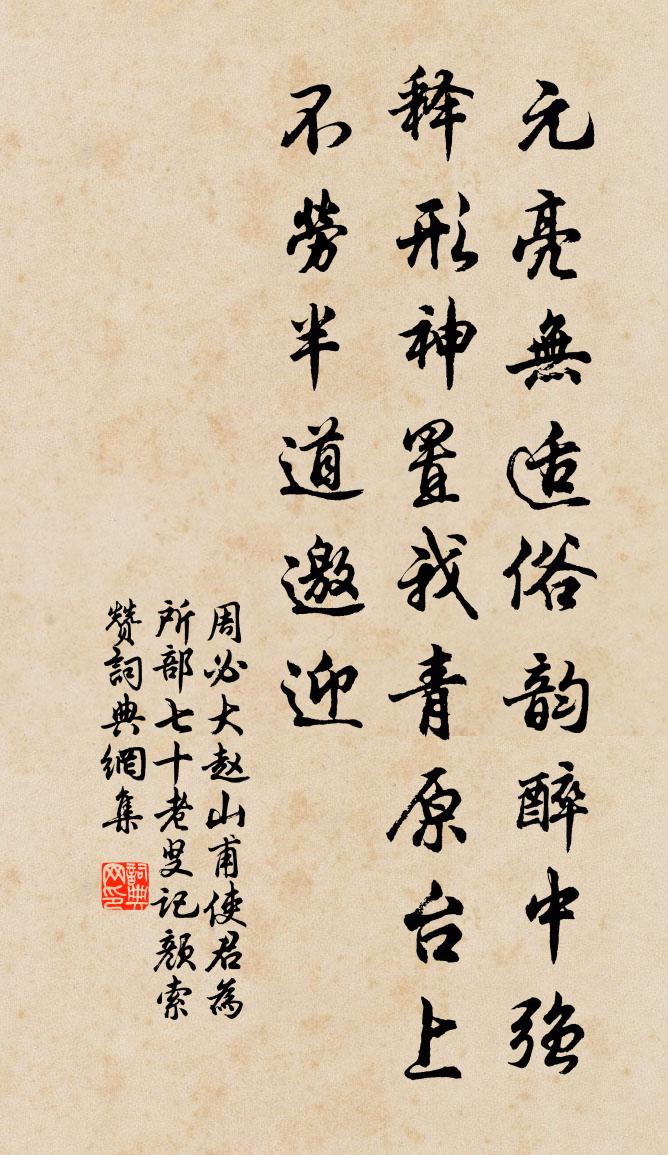 元亮無适俗韵醉中强
释形神置我青原台上
不勞半道邀迎
周必大赵山甫使君為
所部七十老叟记颜索
赞詞典網集
詞典
网印